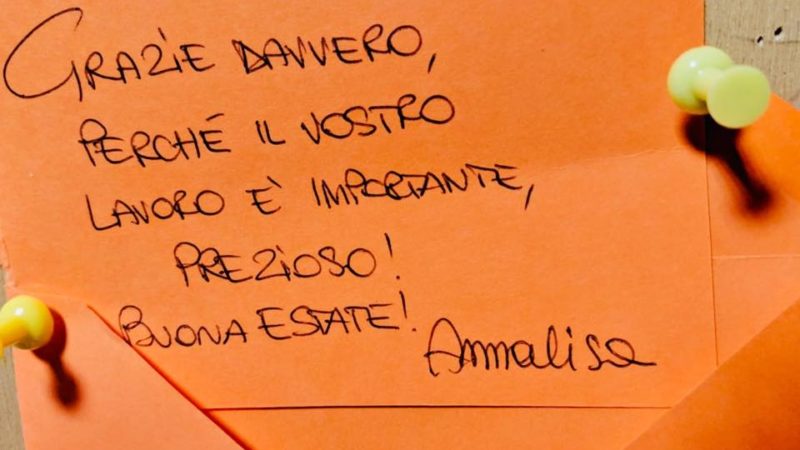 GRAZIE DAVVERO,
PERCHÉ IL VOSTRO
LAVORO È IMPORTANTE,
PREZIOSO!
BUONA ESTATE!
Annalisa